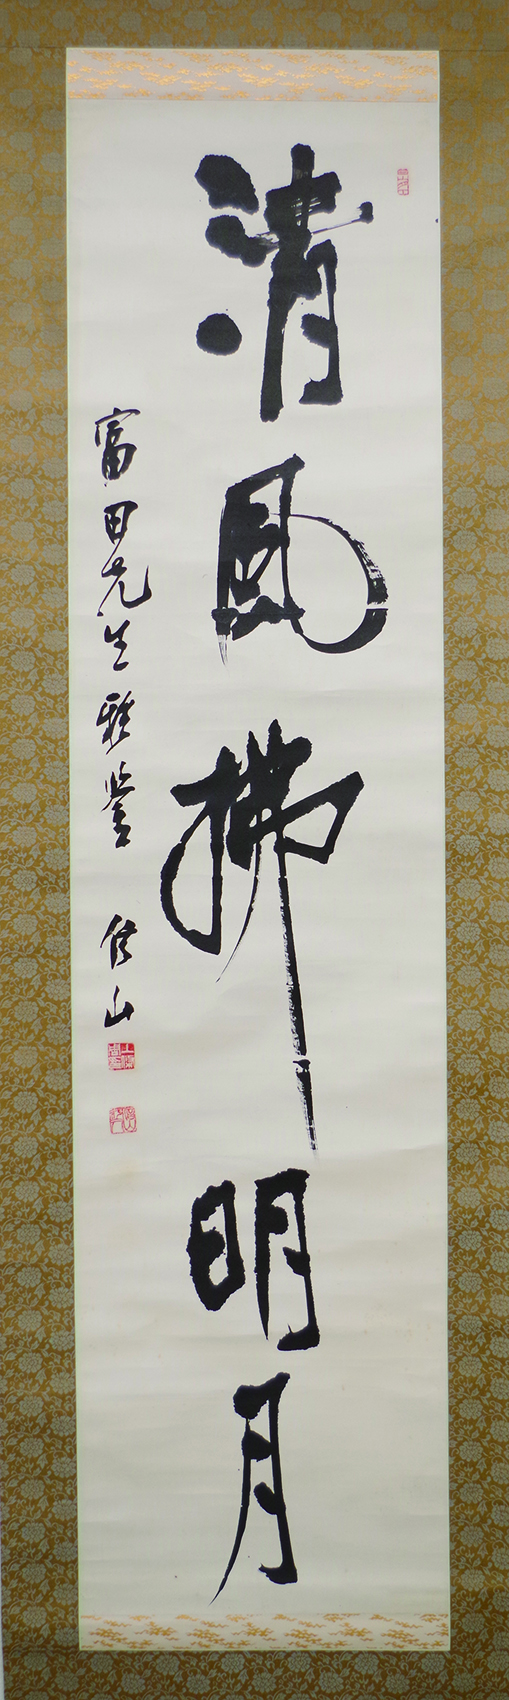 清風拂明月
富田先生雅鑒 信山